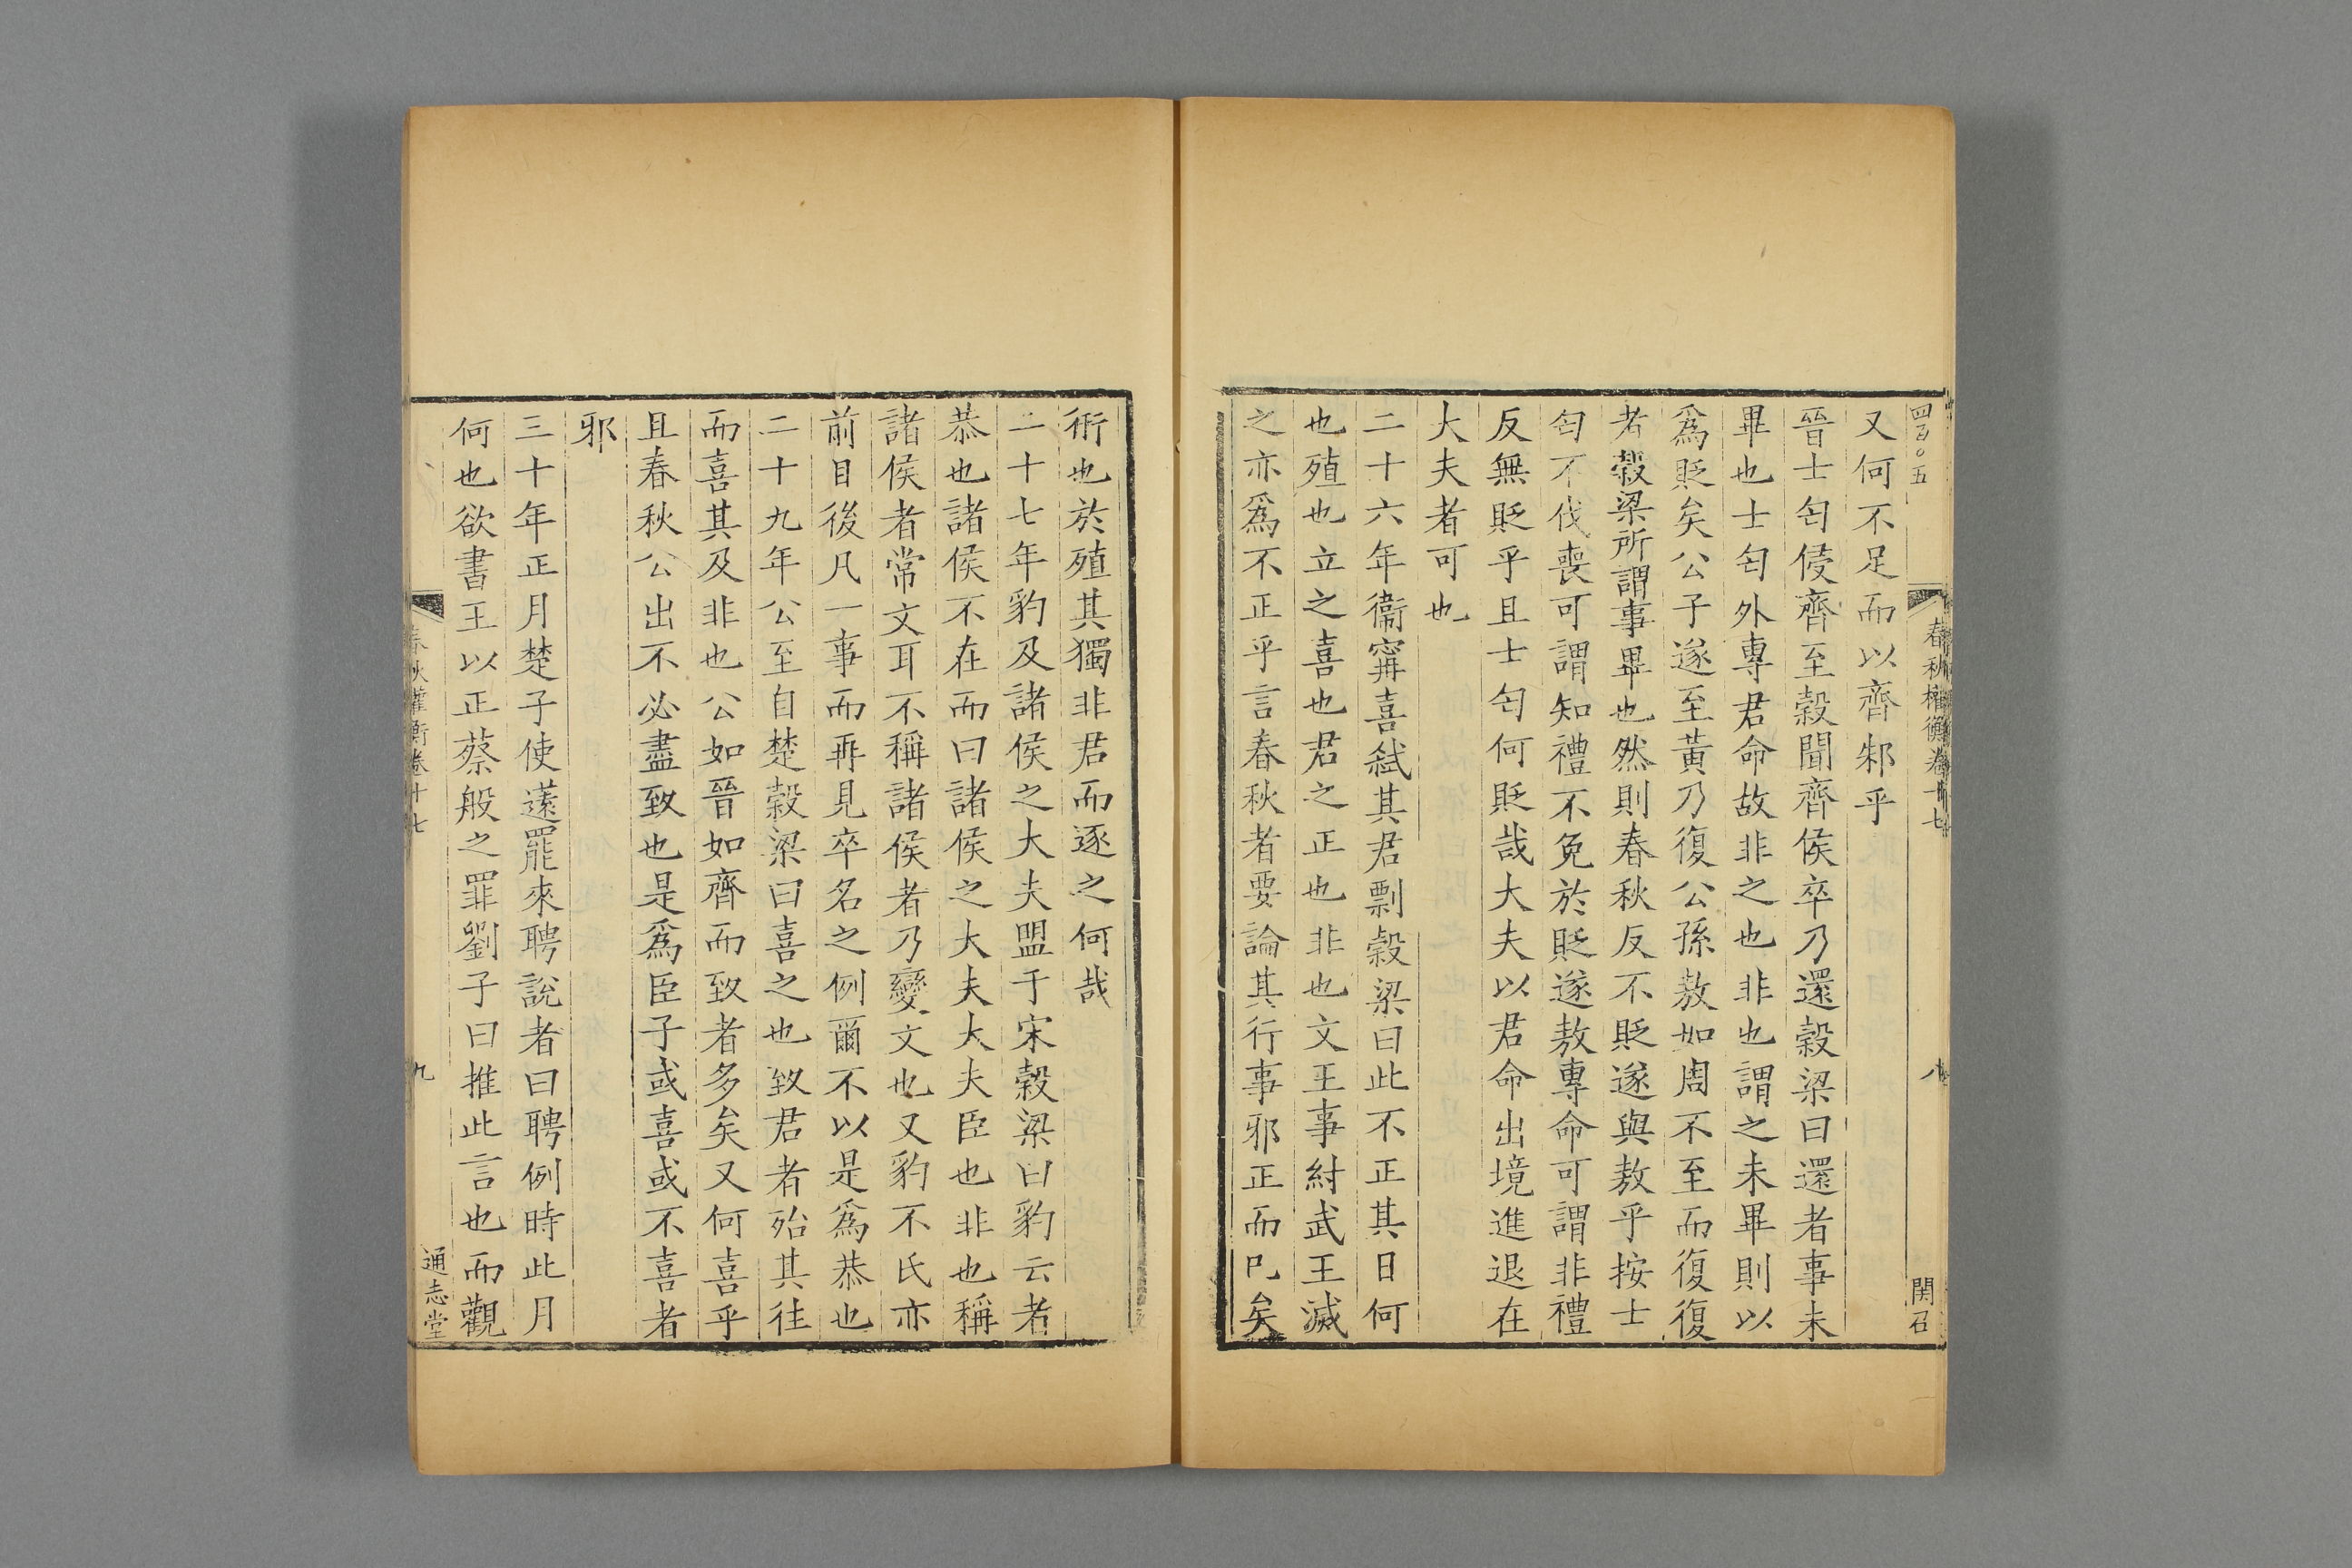 四百〇五
春秋權衡卷十七
八
関召
又何不足而以齊邾乎
晉士匄侵齊至穀聞齊侯卒乃還穀梁曰還者事未
畢也士匄外專君命故非之也非也謂之未畢則以
爲貶矣公子遂至黃乃復公孫敖如周不至而復復
者穀梁所謂事畢也然則春秋反不貶遂與敖乎按士
匄不伐喪可謂知禮不免於貶遂敖專命可謂非禮
反無貶乎且士匄何貶哉大夫以君命出境進退在
大夫者可也
二十六年衞甯喜弑其君剽穀梁曰此不正其日何
也殖也立之喜也君之正也非也文王事紂武王滅
之亦爲不正乎言春秋者要論其行事邪正而巳矣
衎也於殖其獨非君而逐之何哉
二十七年豹及諸侯之大夫盟于宋穀梁曰豹云者
恭也諸侯不在而曰諸侯之大夫大夫臣也非也稱
諸侯者常文耳不稱諸侯者乃變文也又豹不氏亦
前目後凡一事而再見卒名之例爾不以是爲恭也
二十九年公至自楚穀梁曰喜之也致君者殆其往
而喜其及非也公如晉如齊而致者多矣又何喜乎
且春秋公出不必盡致也是爲臣子或喜或不喜者
邪
三十年正月楚子使薳罷來聘說者曰聘例時此月
何也欲書王以正蔡般之罪劉子曰推此言也而觀
春秋權衡卷十七
九
通志堂